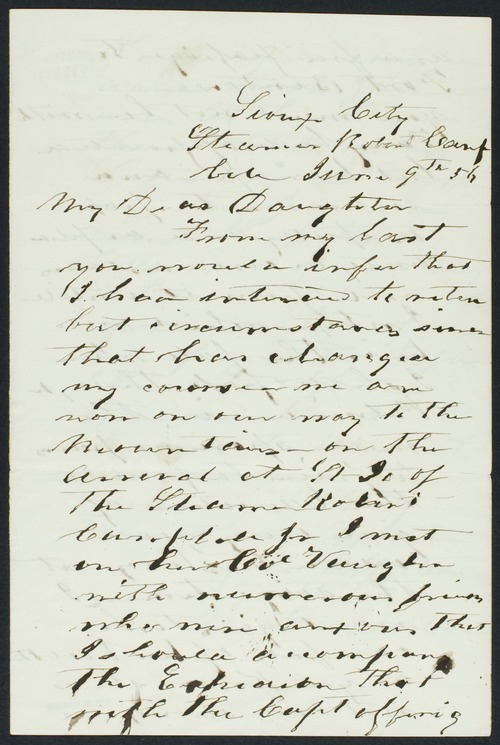 Sioux City
Steamer Robert Camp
bele June 9th 56
My Dear Daughter
From my last
you would infer that
I had intended to return
but circumstances since
that has changed
my course we are
now on our way to the
Mountains on the
arrival at St Jo of
the Steamer Robert
Campbele Jr I met
on her Col Vaughn
with numerous friends
who were anxious that
I should accompany
the Expedition that
with the Capt offering